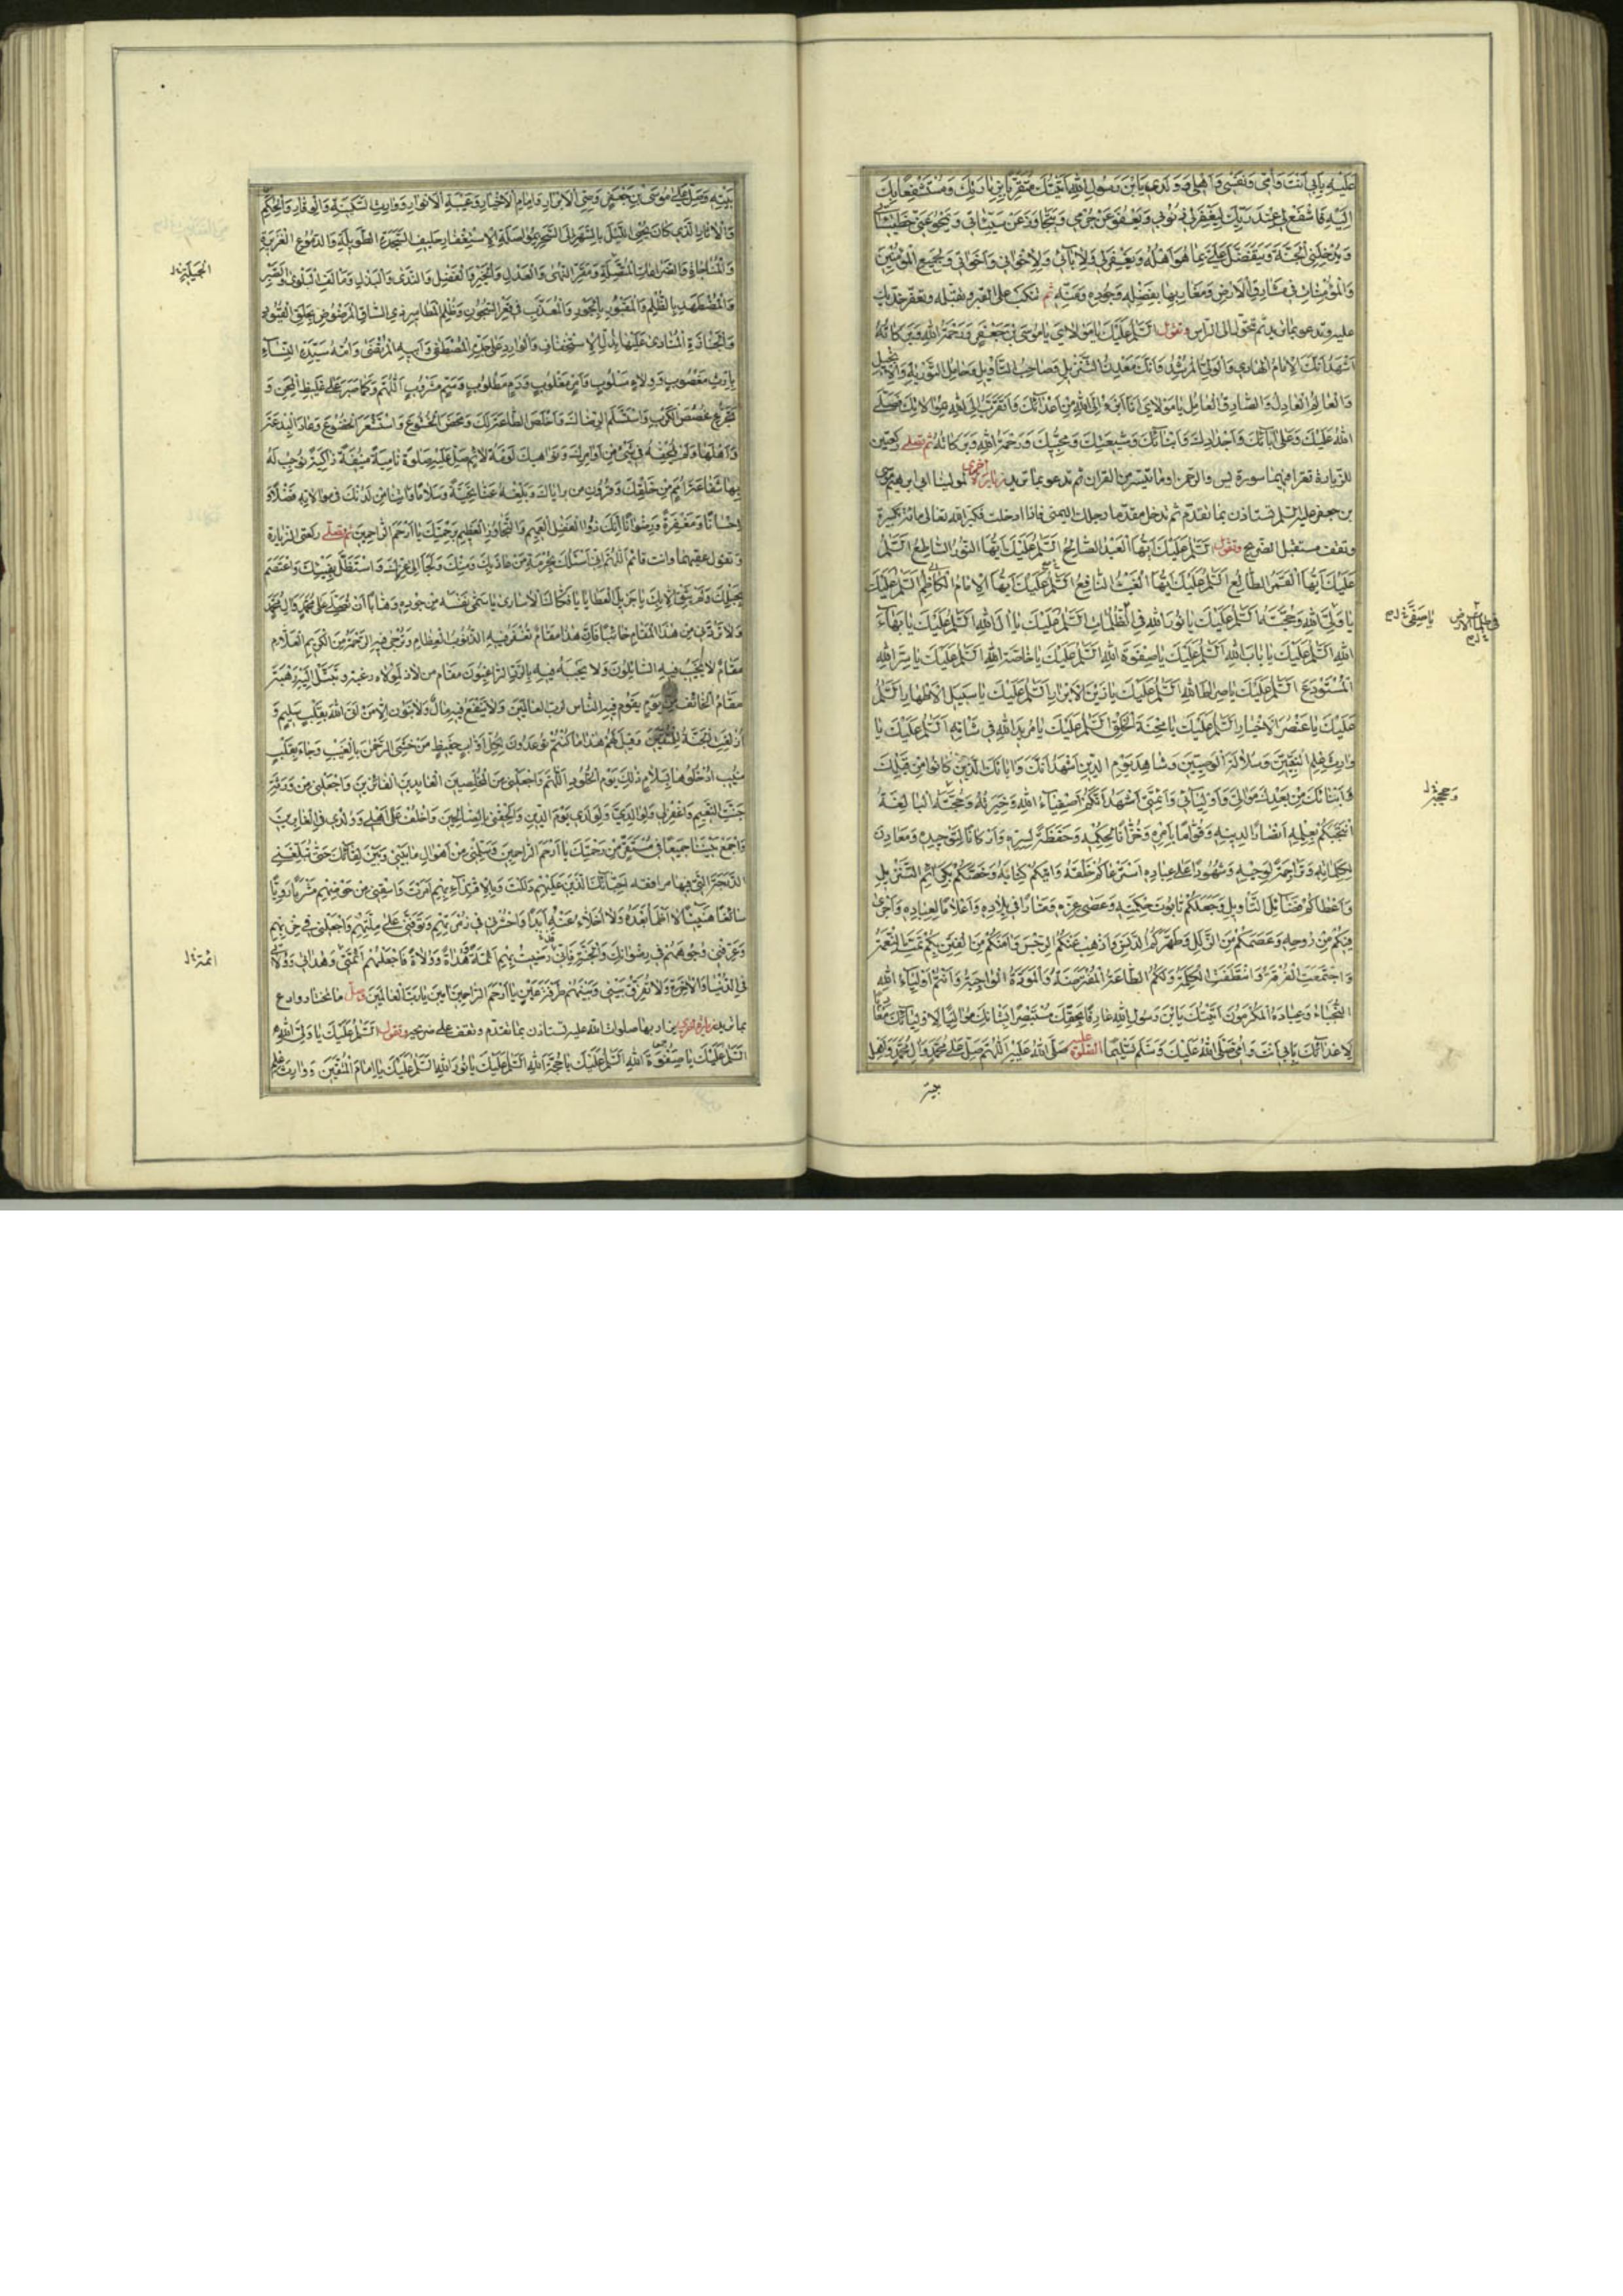 عَلَيْهِ بِاَبي اَنْتَ وَاُمّي وَنَفْسي وَاَهْلي وَوَلَدي يَابْنَ رَسُولِ اللهِ اَتَيْتُكَ مُتَقَرِّبًا بِزِيارَتِكَ وَمُسْتَشْفِعًا بِكَ
اِلَيْهِ فَاشْفَعْ لي عِنْدَ رَبِّكَ لِيَغْفِرَ لي ذُنُوبي وَيَعْفُوَ عَنْ جُرْمي وَيَتَجاوَزَ عَنْ سَيِّئاتي وَيَمْحُوَ عَنّي خَطيئاتي
وَيُدْخِلَنِي الْجَنَّةَ وَيَتَفَضَّلَ عَلَيَّ بِما هُوَ اَهْلُهُ وَيَغْفِرَ لي وَلِاٰبائي وَلِاِخْواني وَاَخَواتي وَلِجَميعِ الْمُؤْمِنينَ
وَالْمُؤْمِناتِ في مَشارِقِ الْاَرْضِ وَمَغارِبِها بِفَضْلِهِ وَجُودِهِ وَمَنِّهِ ثم تنكب على القبر وتقبله وتعفر خديك
عليه وتدعو بما تريد ثم تحول الى الراس وتقول اَلسَّلامُ عَلَيْكَ يا مَوْلايَ يا مُوسَى بْنَ جَعْفَرٍ وَرَحْمَةُ اللهِ وَبَرَكاتُهُ
اَشْهَدُ اَنَّكَ الْاِمامُ الْهادي وَالْوَلِيُّ الْمُرْشِدُ وَاَنَّكَ مَعْدِنُ التَّنْزيلِ وَصاحِبُ التَّأْويلِ وَحامِلُ التَّوْرٰيةِ وَالْاِنْجيلِ
وَالْعالِمُ الْعادِلُ وَالصّادِقُ الْعامِلُ يا مَوْلايَ اَنَا اَبْرَءُ اِلَى اللهِ مِنْ اَعْدائِكَ وَاَتَقَرَّبُ اِلَى اللهِ بِمُوالاتِكَ فَصَلَّى
اللهُ عَلَيْكَ وَعَلى اٰبائِكَ وَاَجْدادِكَ وَاَبْنائِكَ وَشيعَتِكَ وَمُحِبّيكَ وَرَحْمَةُ اللهِ وَبَرَكاتُهُ ثم تصلي ركعتين
للزيارة تقرا فيهما سورة يس والرحمن وما تيسر من القران ثم تدعو بما تريد زيارة اخرى لمولينا ابي ابرهيم موسى
بن جعفر عليه السلم تستاذن بما تقدم ثم تدخل مقدما رجلك اليمنى فاذا دخلت فكبر الله تعالى مائة تكبيرة
وتقف مستقبل الضريح وتقول اَلسَّلامُ عَلَيْكَ اَيُّهَا الْعَبْدُ الصّالِحُ اَلسَّلامُ عَلَيْكَ اَيُّهَا النُّورُ السّاطِعُ اَلسَّلامُ
عَلَيْكَ اَيُّهَا الْقَمَرُ الطّالِعُ اَلسَّلامُ عَلَيْكَ اَيُّهَا الْغَيْثُ النّافِعُ اَلسَّلامُ عَلَيْكَ اَيُّهَا الْاِمامُ الْكاظِمُ اَلسَّلامُ عَلَيْكَ
يا وَلِيَّ اللهِ وَحُجَّتَهُ اَلسَّلامُ عَلَيْكَ يا نُورَ اللهِ فِي الظُّلُماتِ اَلسَّلامُ عَلَيْكَ يا اٰلَ اللهِ اَلسَّلامُ عَلَيْكَ يا بَهاءَ
اللهِ اَلسَّلامُ عَلَيْكَ يا بابَ اللهِ اَلسَّلامُ عَلَيْكَ يا صِفْوَةَ اللهِ اَلسَّلامُ عَلَيْكَ يا خاصَّةَ اللهِ اَلسَّلامُ عَلَيْكَ يا سِرَّ اللهِ
الْمُسْتَوْدَعَ اَلسَّلامُ عَلَيْكَ يا صِراطَ اللهِ اَلسَّلامُ عَلَيْكَ يا زَيْنَ الْاَبْرارِ اَلسَّلامُ عَلَيْكَ يا سَليلَ الْاَطْهارِ اَلسَّلامُ
عَلَيْكَ يا عُنْصُرَ الْاَخْيارِ اَلسَّلامُ عَلَيْكَ يا مِحْنَةَ الْخَلْقِ اَلسَّلامُ عَلَيْكَ يا مُريدَ اللهِ في شَأنِهِ اَلسَّلامُ عَلَيْكَ يا
وارِثَ عِلْمِ النَّبِيّينَ وَسُلالَةَ الْوَصِيّينَ وَشاهِدَ يَوْمِ الدّينِ اَشْهَدُ اَنَّكَ وَاٰباءَكَ الَّذينَ كانُوا مِنْ قَبْلِكَ
وَاَبْناءَكَ مِنْ بَعْدِكَ مَوالِيَّ وَاَوْلِيائي وَاَئِمَّتي اَشْهَدُ اَنَّكُمْ اَصْفِياءُ اللهِ وَخِيَرَتُهُ وَحُجَّتُهُ الْبالِغَةُ
انْتَجَبَكُمْ بِعِلْمِهِ اَنْصارًا لِدينِهِ وَقُوّامًا بِاَمْرِهِ وَخُزّانًا لِحُكْمِهِ وَحَفَظَةً لِسِرِّهِ وَاَرْكانًا لِتَوْحيدِهِ وَمَعادِنَ
لِكَلِماتِهِ وَتَراجِمَةً لِوَحْيِهِ وَشُهُودًا عَلى عِبادِهِ اسْتَرْعاكُمْ خَلْقَهُ وَاٰتٰيكُمْ كِتابَهُ وَخَصَّكُمْ بِكَرائِمِ التَّنْزيلِ
وَاَعْطاكُمْ فَضائِلَ التَّأويلِ وَجَعَلَكُمْ تابُوتَ حِكْمَتِهِ وَعَصٰى عِزِّهِ وَمَنارًا في بِلادِهِ وَاَعْلامًا لِعِبادِهِ وَاَجْرٰى
فيكُمْ مِنْ رُوحِهِ وَعَصَمَكُمْ مِنَ الزَّلَلِ وَطَهَّرَكُمْ مِنَ الدَّنَسِ وَاَذْهَبَ عَنْكُمُ الرِّجْسَ وَاٰمَنَكُمْ مِنَ الْفِتَنِ بِكُمْ تَمَّتِ النِّعْمَةُ
وَاجْتَمَعَتِ الْفُرْقَةُ وَائْتَلَفَتِ الْكَلِمَةُ وَلَكُمُ الطّاعَةُ الْمُفْتَرَضَةُ وَالْمَوَدَّةُ الْواجِبَةُ وَاَنْتُمْ اَوْلِياءُ اللهِ
النُّجَباءُ وَعِبادُهُ الْمُكْرَمُونَ اَتَيْتُكَ يَابْنَ رَسُولِ اللهِ عارِفًا بِحَقِّكَ مُسْتَبْصِرًا بِشَأنِكَ مُوالِيًا لِاَوْلِيائِكَ مُعادِيًا
لِاَعْدائِكَ بِاَبي اَنْتَ وَاُمّي صَلَّى اللهُ عَلَيْكَ وَسَلَّمَ تَسْليمًا الصلوة عليه صَلَّى اللهُ عَلَيْهِ اَللّهُمَّ صَلِّ عَلى مُحَمَّدٍ وَاٰلِ مُحَمَّدٍ وَاَهْلِ
بيته
يا صَفِيَّ
وَحُجَجِهِ
بَيْتِهِ وَصَلِّ عَلى مُوسَى بْنِ جَعْفَرٍ وَصِيِّ الْاَبْرارِ وَاِمامِ الْاَخْيارِ وَعَيْبَةِ الْاَنْوارِ وَوارِثِ السَّكينَةِ وَالْوَقارِ وَالْحِكَمِ
وَالْاٰثارِ الَّذي كانَ يُحْيِي اللَّيْلَ بِالسَّهَرِ اِلَى السَّحَرِ بِمُواصَلَةِ الْاِسْتِغْفارِ حَليفِ السَّجْدَةِ الطَّويلَةِ وَالدُّمُوعِ الْغَزيرَةِ
وَالْمُناجاةِ وَالضَّراعاتِ الْمُتَّصِلَةِ وَمَقَرِّ النُّهٰى وَالْعَدْلِ وَالْخَيْرِ وَالْفَضْلِ وَالنَّدٰى وَالْبَذْلِ وَمَأْلَفِ الْبَلْوٰى وَالصَّبْرِ
وَالْمُضْطَهَدِ بِالظُّلْمِ وَالْمَقْبُورِ بِالْجَوْرِ وَالْمُعَذَّبِ في قَعْرِ السُّجُونِ وَظُلَمِ الْمَطاميرِ ذِي السّاقِ الْمَرْضُوضِ بِحَلَقِ الْقُيُودِ
وَالْجَنازَةِ الْمُنادٰى عَلَيْها بِذُلِّ الْاِسْتِخْفافِ وَالْوارِدِ عَلى جَدِّهِ الْمُصْطَفٰى وَاَبيهِ الْمُرْتَضٰى وَاُمِّهِ سَيِّدَةِ النِّساءِ
بِاِرْثٍ مَغْصُوبٍ وَوِلاءٍ مَسْلُوبٍ وَاَمْرٍ مَغْلُوبٍ وَدَمٍ مَطْلُوبٍ وَسَمٍّ مَشْرُوبٍ اَللّهُمَّ وَكَما صَبَرَ عَلى غَليظِ الْمِحَنِ وَ
تَجَرَّعَ غُصَصَ الْكُرَبِ وَاسْتَسْلَمَ لِرِضاكَ وَاَخْلَصَ الطّاعَةَ لَكَ وَمَحَضَ الْخُشُوعَ وَاسْتَشْعَرَ الْخُضُوعَ وَعادَى الْبِدْعَةَ
وَاَهْلَها وَلَمْ يَلْحَقْهُ في شَيْءٍ مِنْ اَوامِرِكَ وَنَواهيكَ لَوْمَةُ لائِمٍ صَلِّ عَلَيْهِ صَلوةً نامِيَةً مُنيفَةً زاكِيَةً تُوجِبُ لَهُ
بِها شَفاعَةَ اُمَمٍ مِنْ خَلْقِكَ وَقُرُونٍ مِنْ بَراياكَ وَبَلِّغْهُ عَنّا تَحِيَّةً وَسَلامًا وَاٰتِنا مِنْ لَدُنْكَ في مُوالاتِهِ فَضْلًا وَ
اِحْسانًا وَمَغْفِرَةً وَرِضْوانًا اِنَّكَ ذُو الْفَضْلِ الْعَميمِ وَالتَّجاوُزِ الْعَظيمِ بِرَحْمَتِكَ يا اَرْحَمَ الرّاحِمينَ ثم تصلي ركعتي الزيارة
وتقول عقيبهما وانت قائم اَللّهُمَّ اِنّي اَسْئَلُكَ بِحُرْمَةِ مَنْ عاذَ بِكَ مِنْكَ وَلَجَأَ اِلى عِزِّكَ وَاسْتَظَلَّ بِفَيْئِكَ وَاعْتَصَمَ
بِحَبْلِكَ وَلَمْ يَثِقْ اِلّا بِكَ يا جَزيلَ الْعَطايا يا فَكّاكَ الْاُسارٰى يا مَنْ سَمّٰى نَفْسَهُ مِنْ جُودِهِ وَهّابًا اَنْ تُصَلِّيَ عَلى مُحَمَّدٍ وَاٰلِ مُحَمَّدٍ
وَلا تَرُدَّني مِنْ هٰذَا الْمَقامِ خائِبًا فَاِنَّ هٰذا مَقامٌ تُغْفَرُ فيهِ الذُّنُوبُ الْعِظامُ وَتُرْجٰى فيهِ الرَّحْمَةُ مِنَ الْكَريمِ الْعَلّامِ
مَقامٌ لا يَخيبُ فيهِ السّائِلُونَ وَلا يُجْبَهُ فيهِ بِالرَّدِّ الرّاغِبُونَ مَقامُ مَنْ لاذَ بِمَوْلاهُ رَغْبَةً وَتَبَتَّلَ اِلَيْهِ رَهْبَةً
مَقامُ الْخائِفِ مِنْ يَوْمٍ يَقُومُ فيهِ النّاسُ لِرَبِّ الْعالَمينَ وَلا يَنْفَعُ فيهِ مالٌ وَلا بَنُونَ اِلّا مَنْ لَقِيَ اللهَ بِقَلْبٍ سَليمٍ وَ
اُزْلِفَتِ الْجَنَّةُ لِلْمُتَّقينَ وَقيلَ لَهُمْ هٰذا ما كُنْتُمْ تُوعَدُونَ لِكُلِّ اَوّابٍ حَفيظٍ مَنْ خَشِيَ الرَّحْمٰنَ بِالْغَيْبِ وَجاءَ بِقَلْبٍ
مُنيبٍ اُدْخُلُوها بِسَلامٍ ذٰلِكَ يَوْمُ الْخُلُودِ اَللّهُمَّ وَاجْعَلْني مِنَ الْمُخْلِصينَ الْعابِدينَ الْفائِزينَ وَاجْعَلْني مِنْ وَرَثَةِ
جَنَّةِ النَّعيمِ وَاغْفِرْ لي وَلِوالِدَيَّ وَلِوَلَدي يَوْمَ الدّينِ وَاَلْحِقْني بِالصّالِحينَ وَاخْلُفْ عَلى اَهْلي وَوُلْدي فِي الْغابِرينَ
وَاجْمَعْ بَيْنَنا جَميعًا في مُسْتَقَرٍّ مِنْ رَحْمَتِكَ يا اَرْحَمَ الرّاحِمينَ وَسَلِّمْني مِنْ اَهْوالِ ما بَيْني وَبَيْنَ لِقائِكَ حَتّٰى تُبَلِّغَني
الدَّرَجَةَ الَّتي فيها مُرافَقَةُ اَحِبّائِكَ الَّذينَ عَلَيْهِمْ دَلَلْتَ وَبِالْاِقْتِداءِ بِهِمْ اَمَرْتَ وَاسْقِني مِنْ حَوْضِهِمْ مَشْرَبًا رَوِيًّا
سائِغًا هَنيئًا لا اَظْمَأُ بَعْدَهُ وَلا اُحَلَّأُ عَنْهُ اَبَدًا وَاحْشُرْني في زُمْرَتِهِمْ وَتَوَفَّني عَلى مِلَّتِهِمْ وَاجْعَلْني في حِزْبِهِمْ
وَعَرِّفْني وُجُوهَهُمْ في رِضْوانِكَ وَالْجَنَّةِ فَاِنّي رَضيتُ بِهِمْ اَئِمَّةً وَهُداةً وَوُلاةً فَاجْعَلْهُمْ اَئِمَّتي وَهُداتي وَوُلاتي
فِي الدُّنْيا وَالْاٰخِرَةِ وَلا تُفَرِّقْ بَيْني وَبَيْنَهُمْ طَرْفَةَ عَيْنٍ يا اَرْحَمَ الرّاحِمينَ اٰمينَ يا رَبَّ الْعالَمينَ وصل ما تختار وادع
بما تريد زيارة اخرى يزار بها صلوات الله عليه تستاذن بما تقدم وتقف على ضريحه وتقول اَلسَّلامُ عَلَيْكَ يا وَلِيَّ اللهِ
اَلسَّلامُ عَلَيْكَ يا صِفْوَةَ اللهِ اَلسَّلامُ عَلَيْكَ يا حُجَّةَ اللهِ اَلسَّلامُ عَلَيْكَ يا نُورَ اللهِ اَلسَّلامُ عَلَيْكَ يا اِمامَ الْمُتَّقينَ وَوارِثَ عِلْمِ